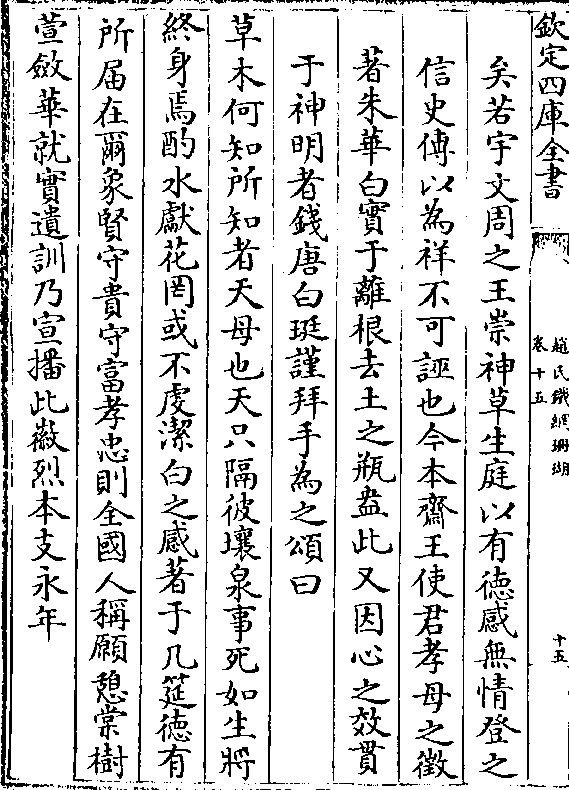 欽定四庫全書
趙氏鐵網珊瑚
卷十五
十五
矣若宇文周之王崇神草生庭以有徳感無情登之
信史傅以為祥不可誣也今本齋王使君孝母之徵
著朱華白實于離根去土之瓶盎此又因心之效貫
于神明者錢唐白珽謹拜手為之頌曰
草木何知所知者天母也天只隔彼壤泉事死如生將
終身焉酌水獻花罔或不虔潔白之感著于几筵徳有
所届在爾象賢守貴守富孝忠則全國人稱願憩棠樹
萱斂華就實遺訓乃宣播此徽烈本支永年